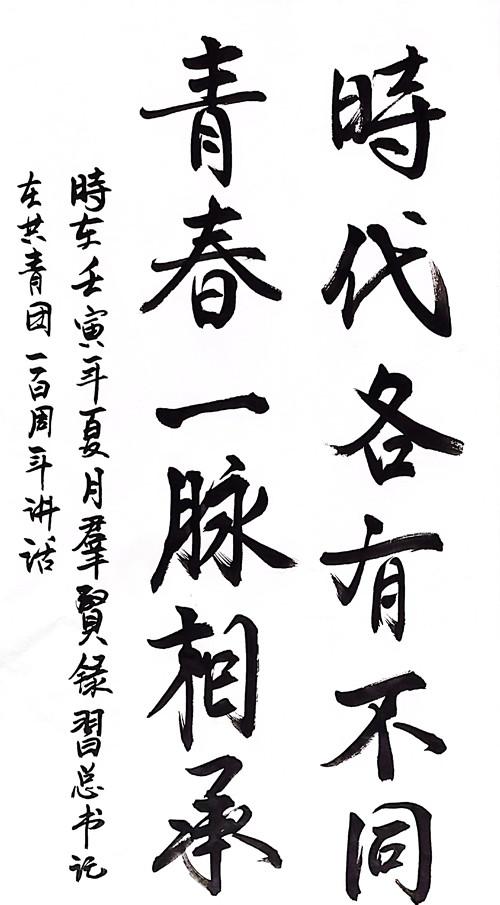 時代各有不同
青春一脉相承
時在壬寅年夏月羣賢録習总书记
在共青团一百周年讲话